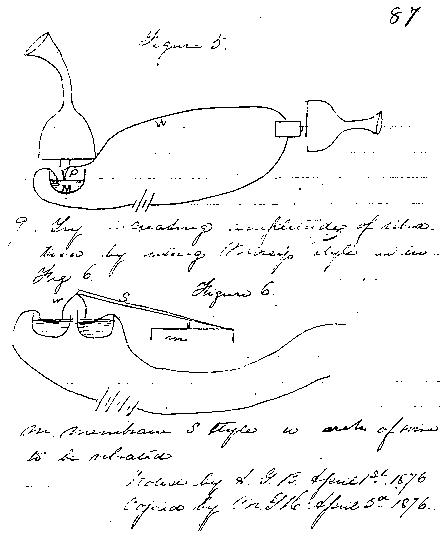 87
Figure 5.
W
P
M
9. Try increasing amplitude of vibra-
tion by using style as in
Fig 6.
Figure 6.
W
S
m
m. membrane S Style w arch of wire
to be vibrated
by A. G. B. April 1st 1876
Copied by April 3d 1876.